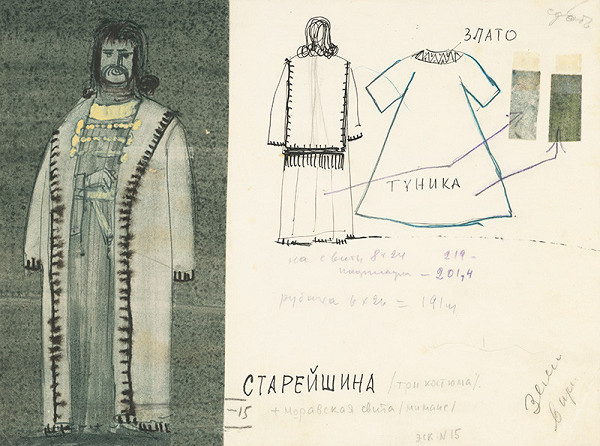 сдать
ЗЛАТО
ТУНИКА
на свиты 8х24 219 -
– 201,4
рубаха 6х26 = 191 м
СТАРЕЙШИНА /три костюма/.
-15 + моравская свита /миманс/
эск. N 15